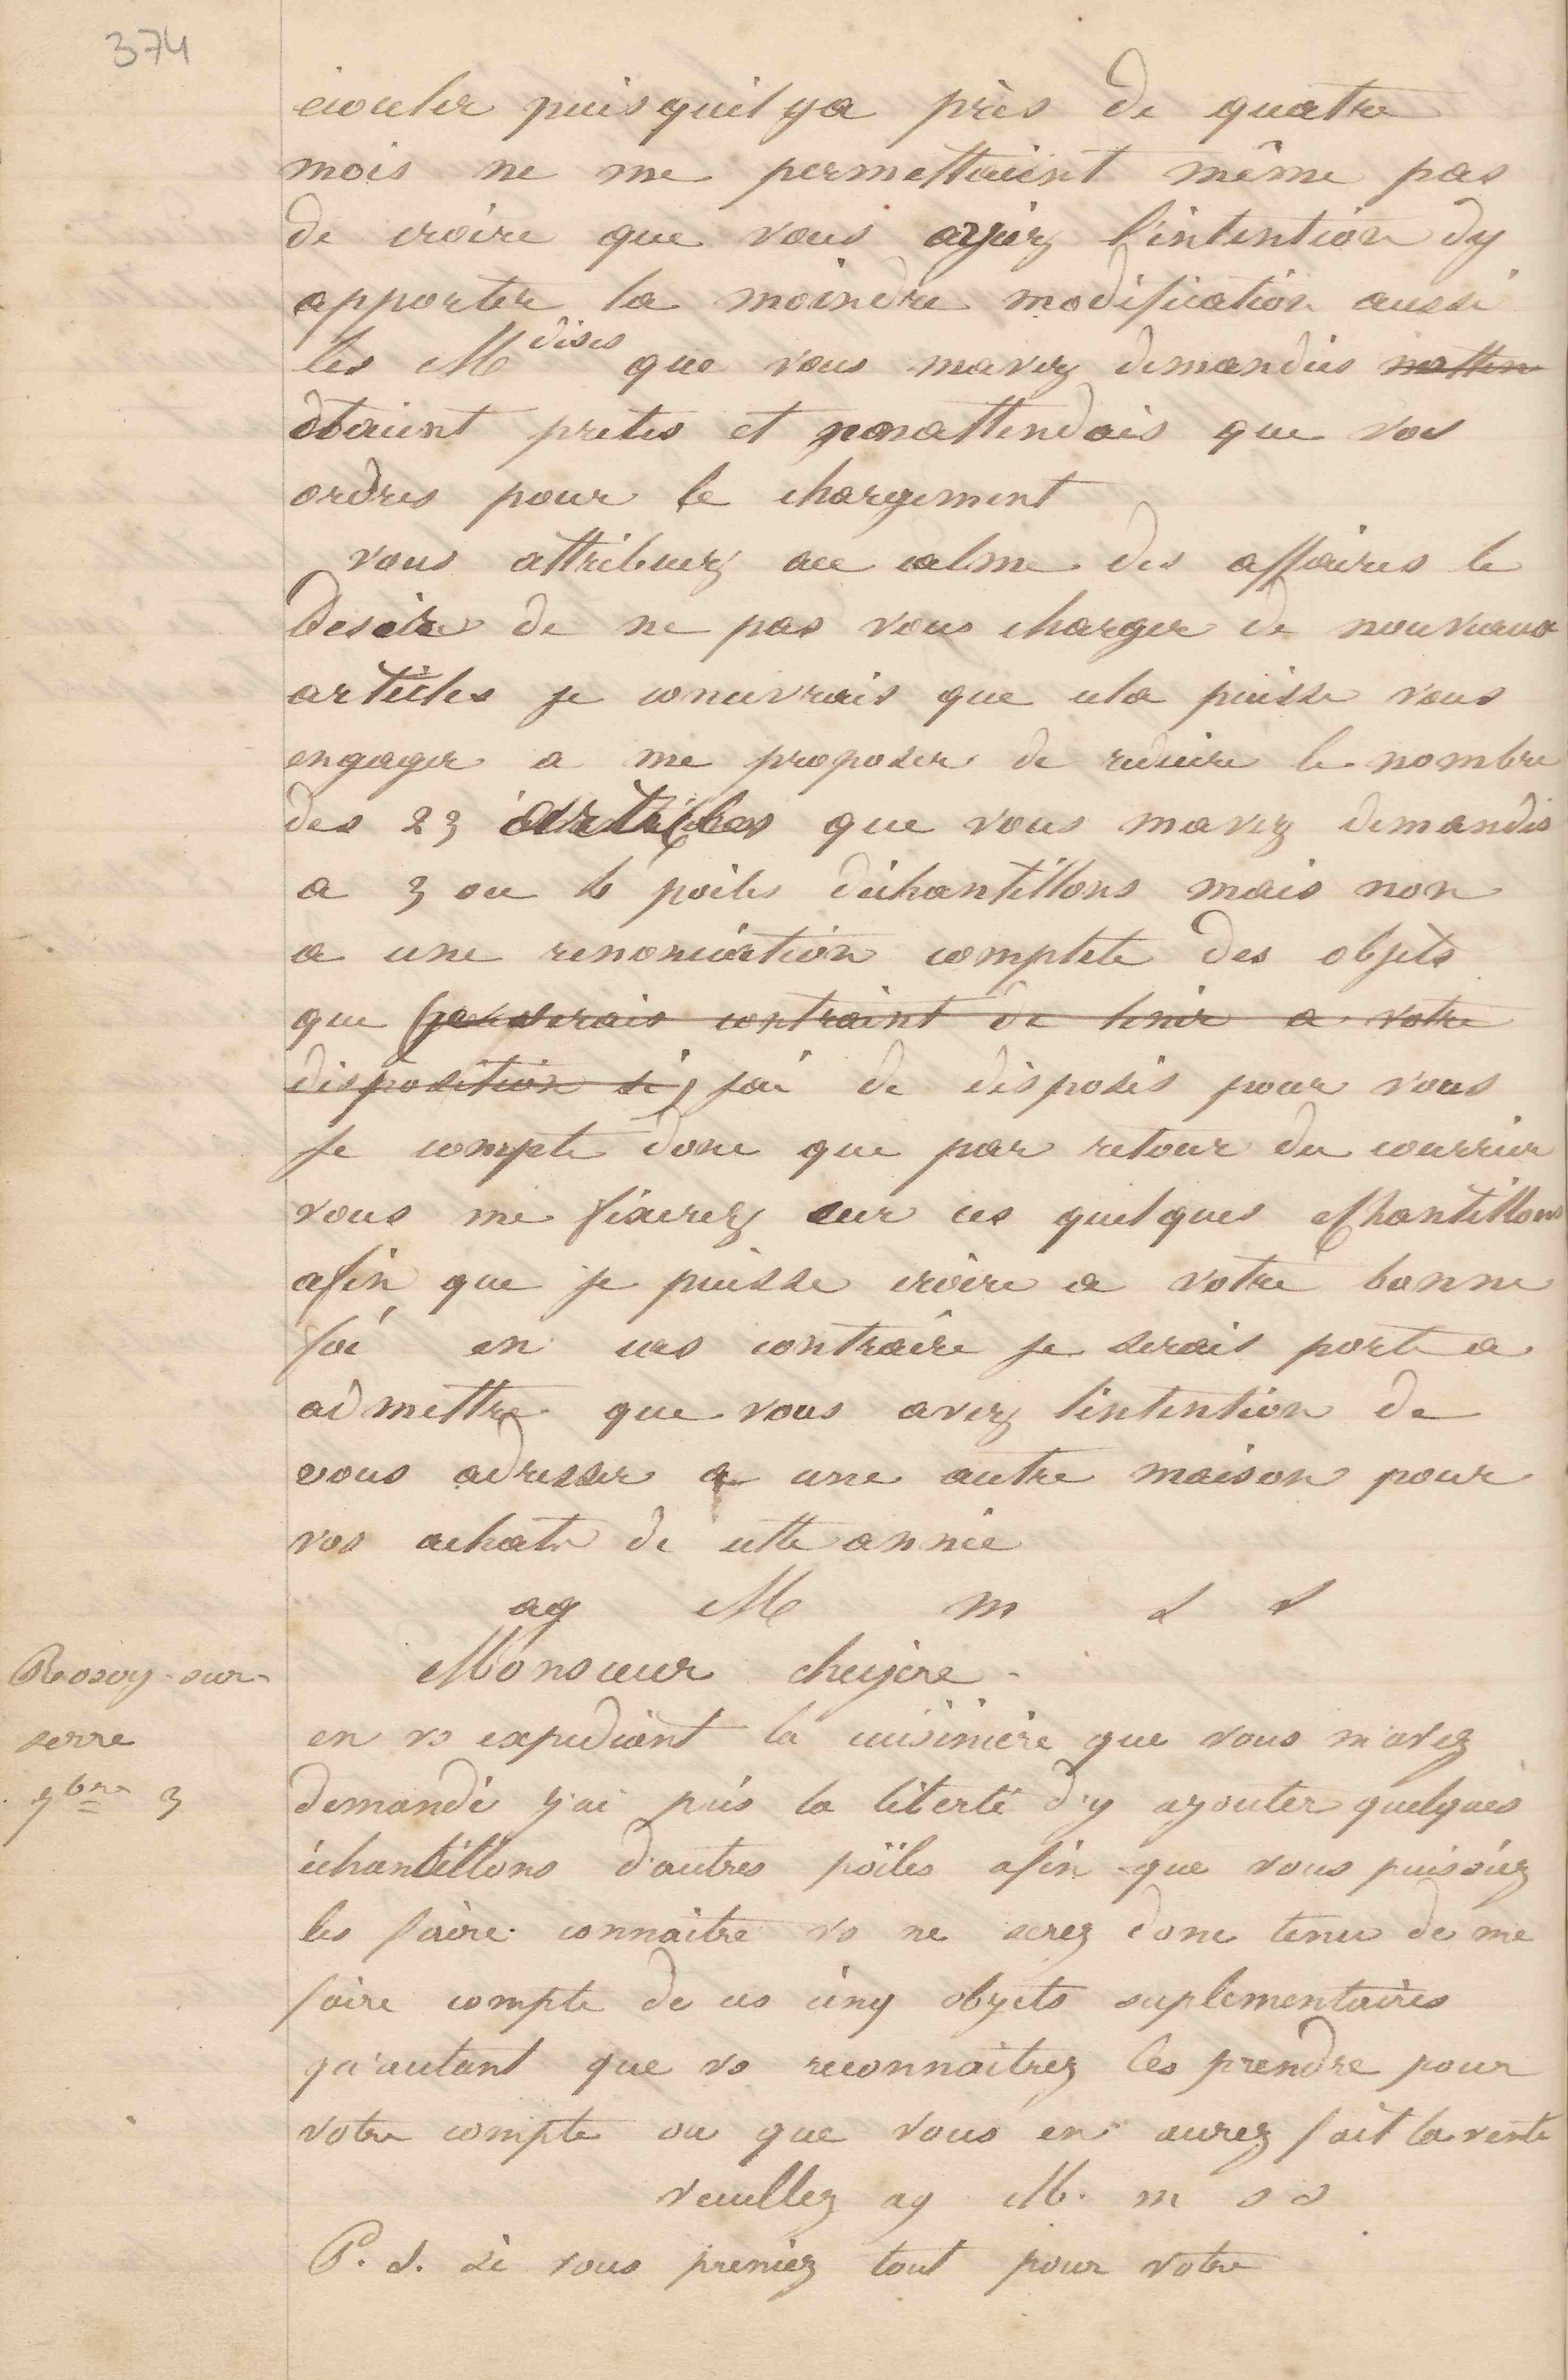 374
écouler puisquil ya près de quatre
mois ne me permettaient même pas
de croire que vous ayiez l'intention dy
apporter la moindre modification aussi
les Mdises que vous mavez demandées
étaient pretes et nattendais que vos
ordres pour le chargement
vous attribuez au calme des affaires le
desir de ne pas vous charger de nouveaux
articles je concevrais que cela puisse vous
engager a me proposer de reduire le nombre
des 23 articles que vous mavez demandés
a 3 ou 4 poëles déchantillons mais non
a une renonciation complete des objets
que je serais contraint de tenir a votre
disposition si j'ai de disposés pour vous
Je compte donc que par retour du courrier
vous me fixerez sur ces quelques echantillons
afin que je puisse croire a votre bonne
foi en cas contraire je serais porté a
admettre que vous avez lintention de
vous adresser a une autre maison pour
vos achats de cette année
ag M m s s
Rosoy-sur-
serre
9bre 3
Monsieur
en vs expediant la cuisinière que vous m'avez
demandé j'ai pris la liberté d'y ajouter quelques
échantillons d'autres poëles afin que vous puissiez
les faire connaitre vs ne serez donc tenu de me
faire compte de ces cinq objets suplementaires
qu'autant que vs reconnaitrez les prendre pour
votre compte ou que vous en aurez fait la vente
veuillez ag M. m s s
P. S. Si vous preniez tout pour votre